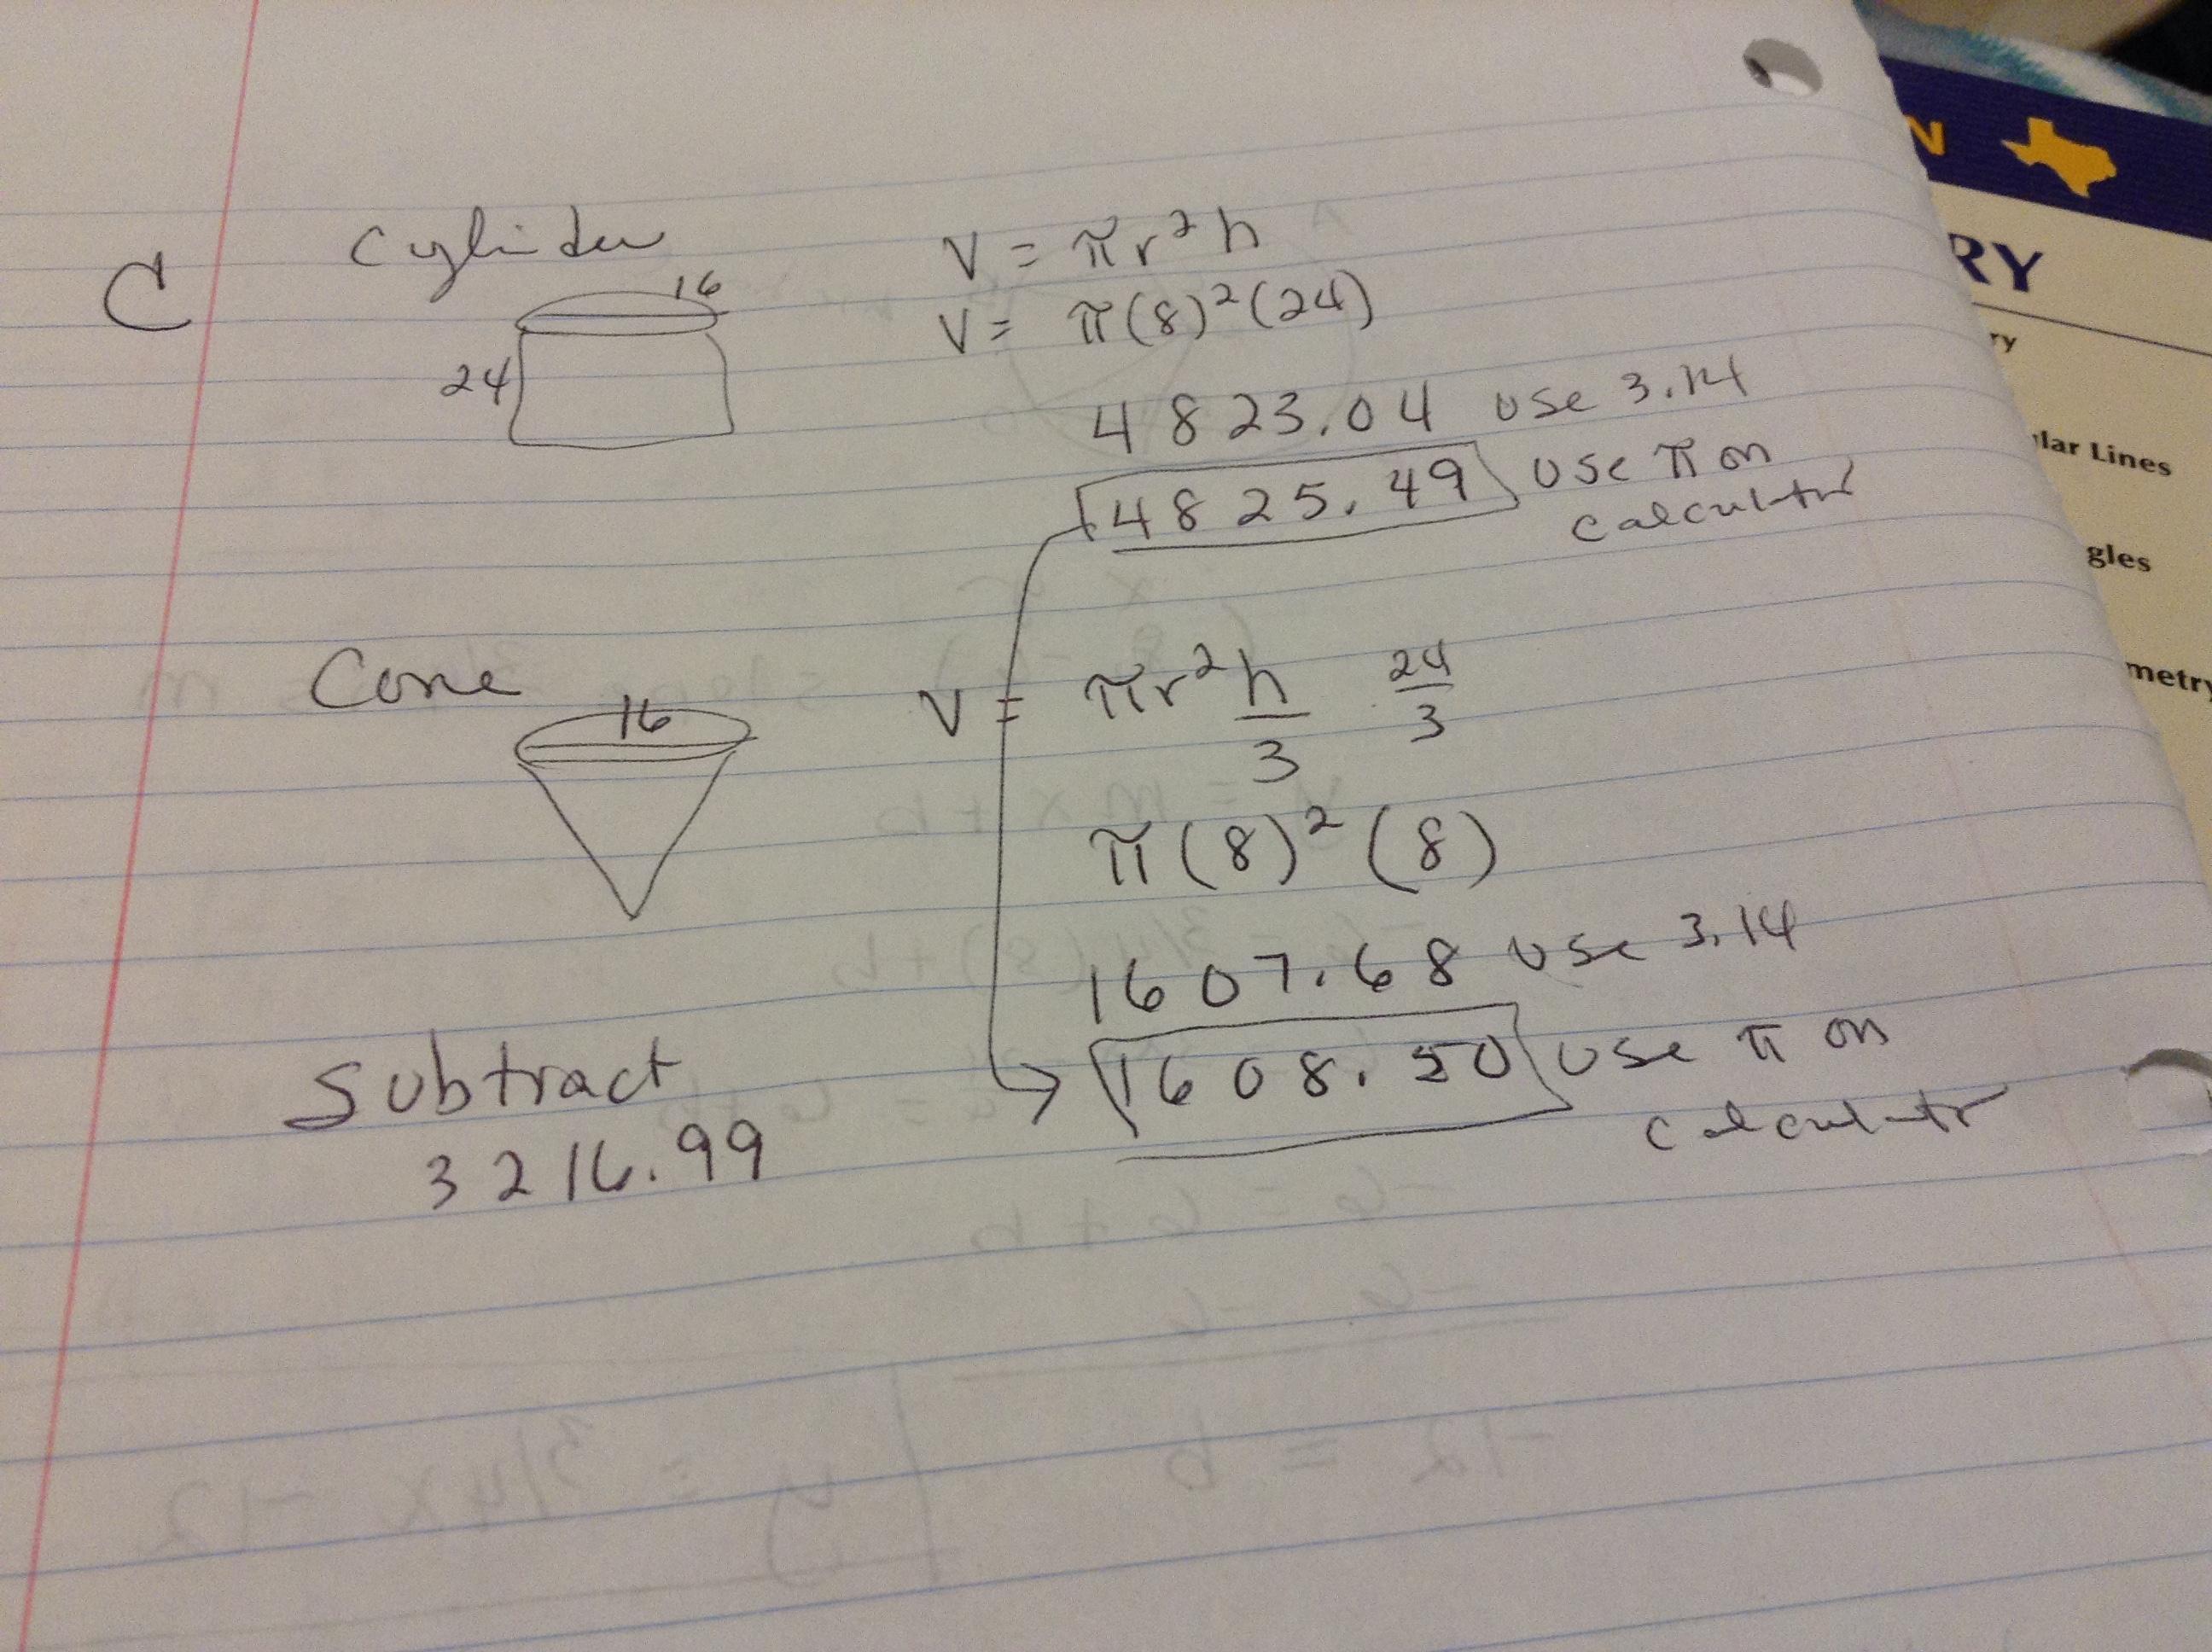 C
Cylinder
16
24
V = πr²h
V = π(8)²(24)
4823.04 use 3.14
4825.49 use π on
calculator
Cone
16
V = πr²h/3 24/3
π(8)²(8)
1607.68 use 3.14
1608.50 use π on
calculator
Subtract
3216.99
N
RY
ry
lar Lines
gles
metry